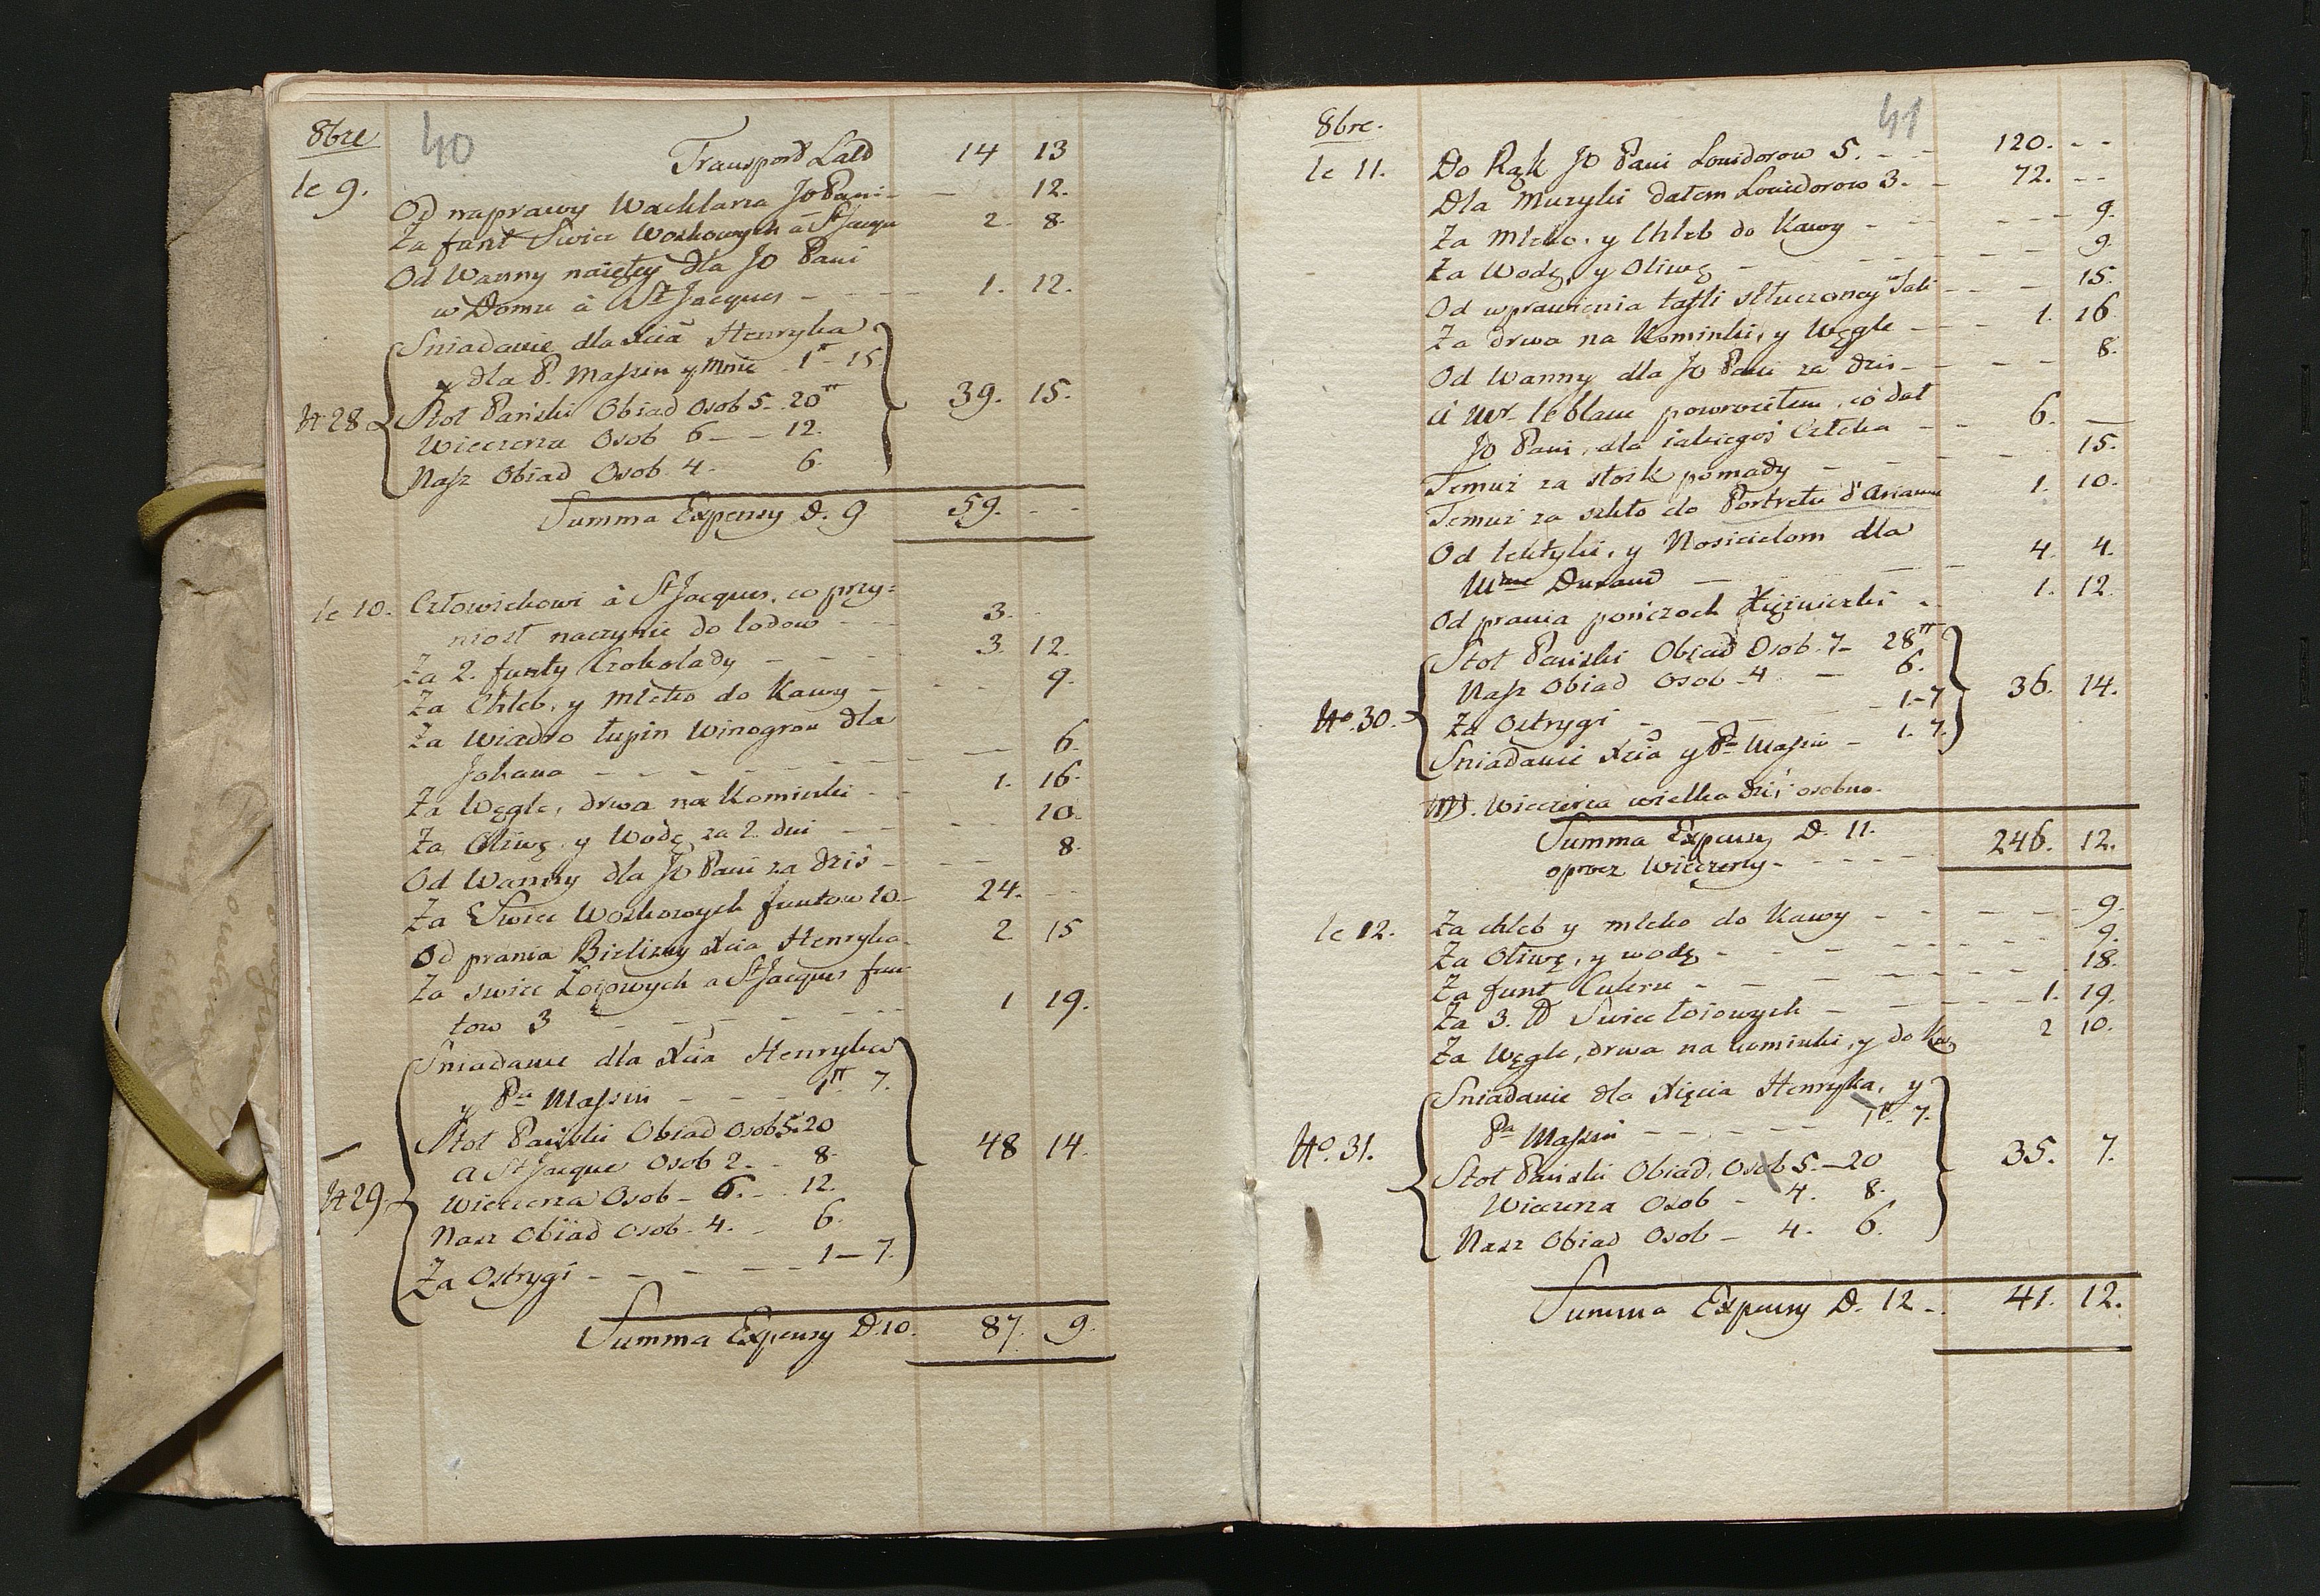 8bre 40
Transport Latd 14 13
le 9. Od naprawy Wachlarza JO Pani - — 12.
Za funt Swiec Woskowych à St Jacqu 2. 8.
Od Wanny naiętey dla JO Pani
w Domu à St Jacques - - - 1. 12.
Sniadanie dla Xcia Henryka
y dla P. Maszin y Mnie 1tt - 15
N 28 Stoł Pański Obiad Osob 5. 20tt 39. 15.
Wieczerza Osob 6 - - 12.
Nasz Obiad Osob. 4. 6.
Summa Expensy D. 9 59. - -
le 10. Człowiekowi à St Jacques, co przy=
niosł naczynie do lodow - - 3. -
Za 2. funty Czokolady - - - 3. 12.
Za Chleb, y mleko do Kawy - - - 9.
Za Wiadro łupin Winogron dla
Johana - - - - - - — 6.
Za Węgle, drwa na Kominki - - 1. 16.
Za Oliwę, y Wodę, za 2. dni - - - - 10.
Od Wanny dla JO Pani za dziś - - - 8.
Za Swiec Woskowych funtow 10 - 24. - -
Od prania Bielizny Xcia Henryka - 2 15
Za swiec Łoiowych a St Jacques fun
tow 3 - - - - - - 1 19.
Sniadanie dla Xcia Henryka
y Pa Maszin - - - 1tt 7.
Stoł Pański Obiad Osob 5. 20
A St Jacque Osob 2. - 8. 48 14.
N 29 Wieczerza Osob - 6. - . 12.
Nasz Obiad Osob - 4. - 6.
Za Ostrygi - - - - - 1 - 7.
Summa Expensy D. 10. 87. 9.
8bre. 41
le 11. Do Rąk JO Pani Louidorow 5. - - 120. - -
Dla Muzyki dałem Louidorow 3. - 72. - -
Za Mleko, y Chleb do Kawy - - - - - 9.
Za Wodę, y Oliwę - - - - - - 9.
Od wprawienia tafli stłuczoney Sali - - - 15.
Za drwa na Kominki, y Węgle - - - 1. 16.
Od Wanny dla JO Pani za dziś - - - 8.
à Mr leblanc powrociłem, co dał
JO Pani, dla iakiegoś Człeka - - 6. —
Temuż za słoik pomady - - - - 15.
Temuż za szkło do Portretu d'Arianne 1. 10.
Od lektyki, y Nosicielom dla
Mme Durand - - - - 4. 4.
Od prania pończoch Xiężniczki - - 1. 12.
Stoł Pański Obiad Osob. 7 - 28tt
Nasz Obiad Osob - 4 - 6.
No. 30. Za Ostrygi - - - - 1. - 7 36. 14.
Sniadanie Xcia y Pa Maszin - 1. 7.
NB. Wieczerza wielka dziś osobno.
Summa Expensy D. 11.
oprocz Wieczerzy - - - - - 246. 12.
le 12. Za chleb y mleko do Kawy - - - - - 9.
Za Oliwę, y wodę - - - - - - 9.
Za funt Cukru - - - - - - 18.
Za 3. tt Swiec łoiowych - - - - 1. 19.
Za Węgle, drwa na kominki, y do Kaw. 2 10.
Sniadanie dla Xięcia Henryka, y
Pa Maszin - - - - - 1tt. 7.
No. 31. Stoł Pański Obiad, Osob 5. - 20 35. 7.
Wieczerza Osob - 4. 8.
Nasz Obiad Osob - 4. 6.
Summa Expensy D. 12 - . 41. 12.